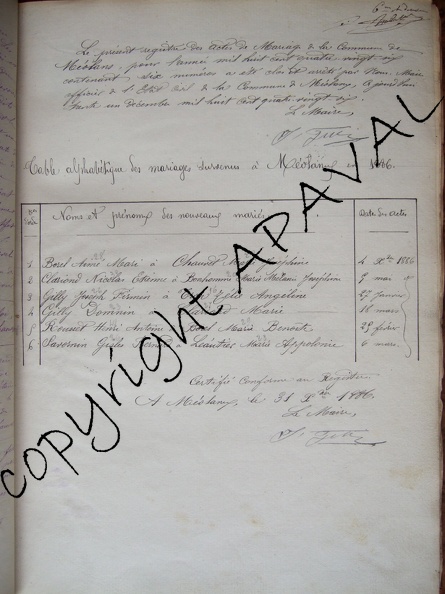 Le présent registre des actes de Mariage de la Commune de
Méolans, pour l'année mil huit cent quatre vingt six
contenant six numéros a été clos et arrêté par Nous, Maire
officier de l'Etat civil de la Commune de Méolans, le
trente un Décembre mil huit cent quatre vingt six
Le Maire,
Table alphabétique des mariages survenus à Méolans en 1886.
Noms et prénoms des nouveaux mariés Date des Actes
1 Borel Aimé Marie à Chaund Joséphine 4 Xbre 1886
2 Clariond Nicolas Etienne à Bonhomme Marie Joséphine 9 mai
3 Gilly Joseph Firmin à Angéline 27 Janvier
4 Gilly Dominin à Marie 16 mars
5 Antoine à Borel Marie Benoite 29 février
6 Savornin à Léautier Marie Appolonie 6 mars
Certifié Conforme au Registre
A Méolans, le 31 Xbre 1886.
Le Maire,
copyright APAVAL